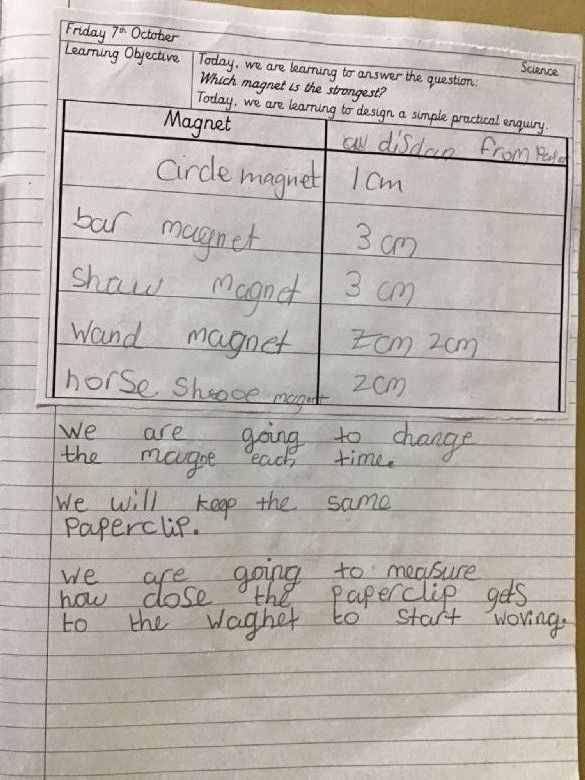 Friday 7th October
Science
Learning Objective
Today, we are learning to answer the question:
Which magnet is the strongest?
Today, we are learning to design a simple practical enquiry.
Magnet from
circle magnet 1cm
bar magnet 3 cm
shaw magnet 3 cm
wand magnet 2cm 2cm
horse shooe magnet 2cm
we are going to change
the magne each time.
we will keep the same
paperclip.
we are going to measure
how close the paperclip gets
to the waghet to start woving.